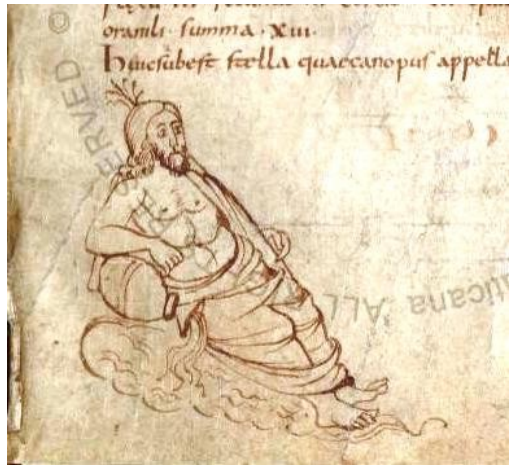 oranili · summa · XIII ·
Huicsubest stella quaecanopus appella
© RESERVED
aticana ALL